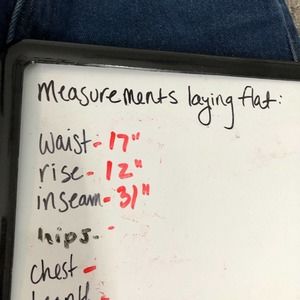 Measurements laying flat:
Waist- 17"
rise- 12"
inseam- 31"
hips-
chest-